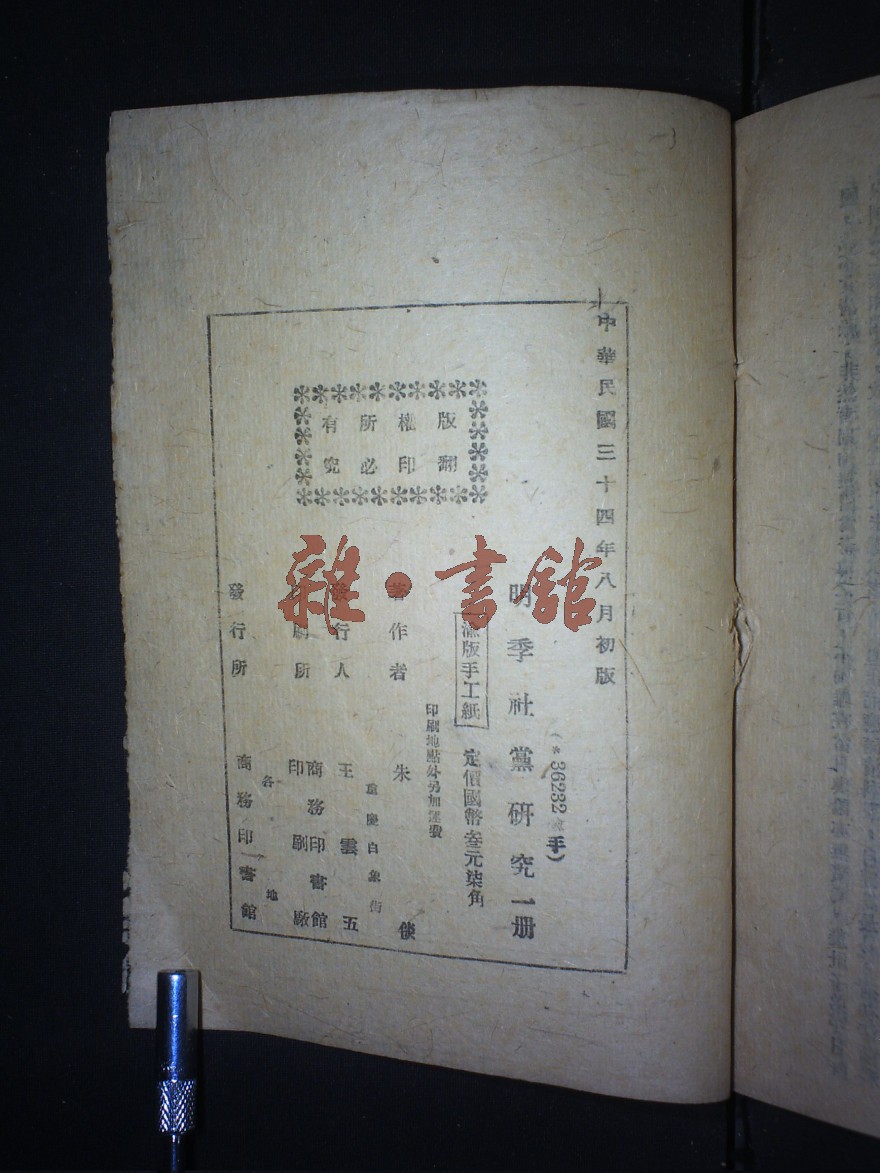 中華民國三十四年八月初版
(＊36232 手)
明季社黨研究一册
渝版手工紙
定價國幣叁元柒角
印刷地點外另加運費
版權所有
翻印必究
著作者 朱倓
發行人 王雲五
重慶白象街
印刷所 商務印書館印刷廠
發行所 商務印書館
各地
雜·書舘